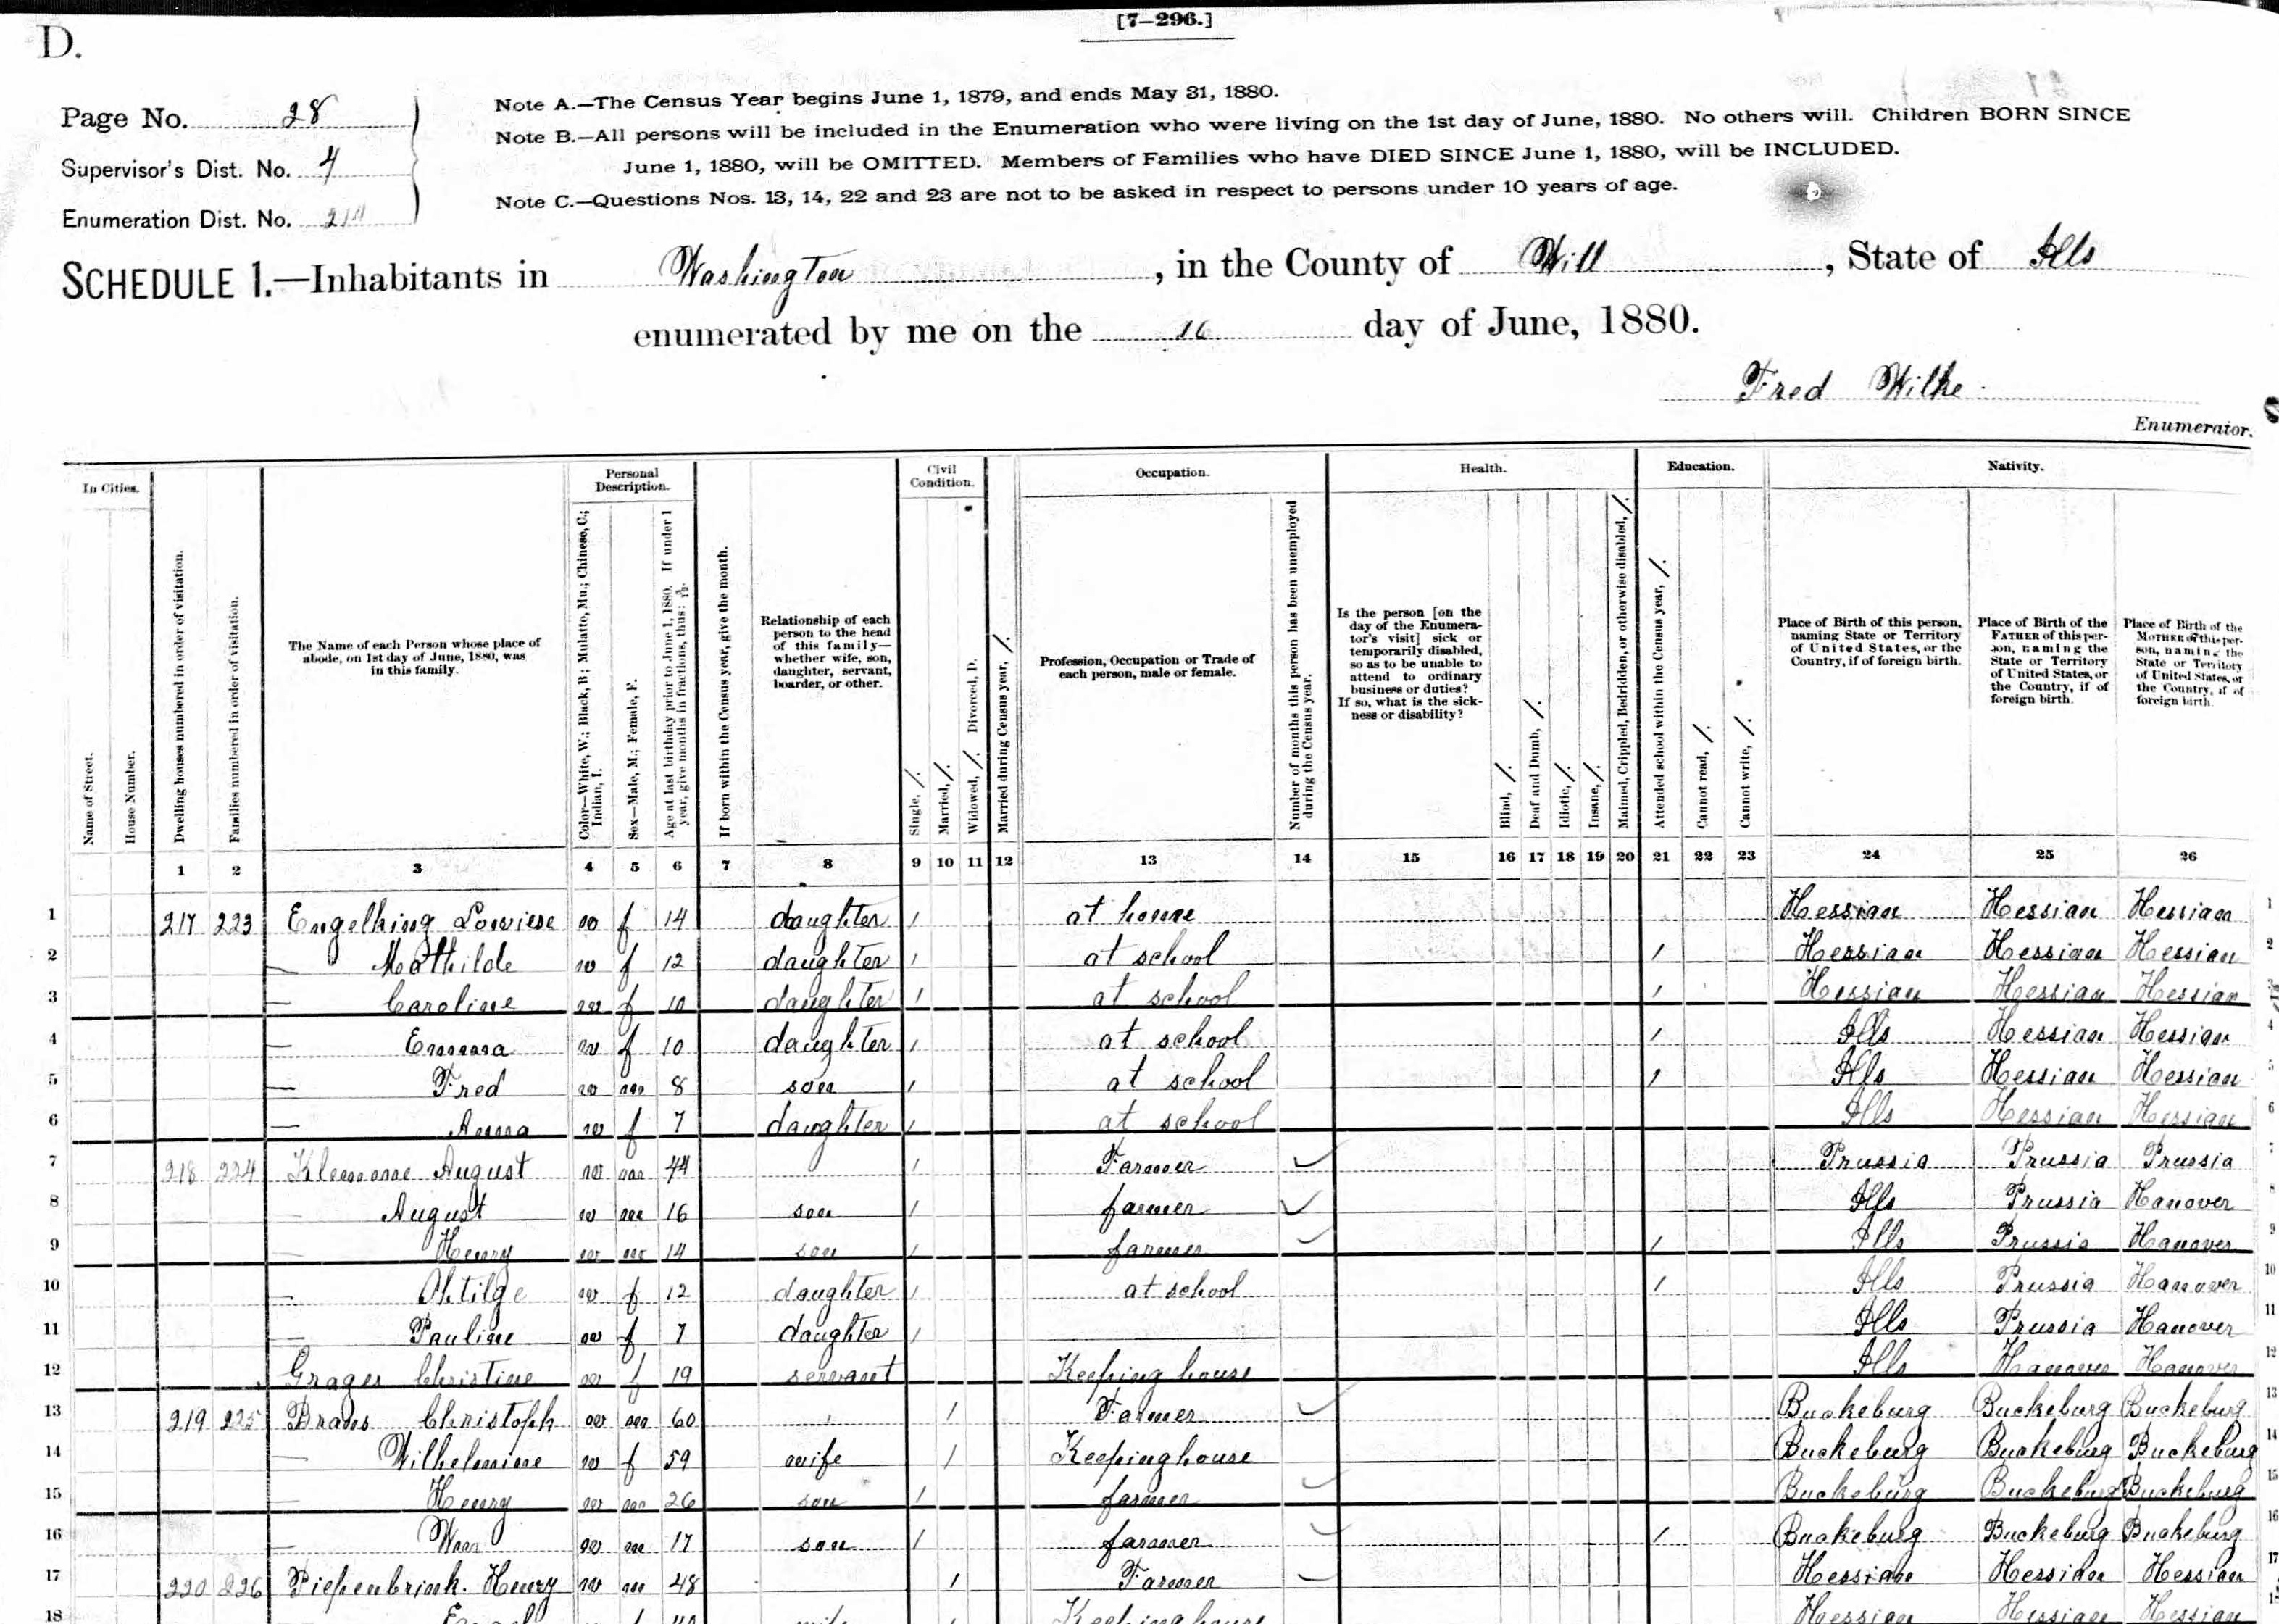 [7-296.]
D.
Page No. 28
Supervisor's Dist. No. 4
Enumeration Dist. No. 214
Note A.—The Census Year begins June 1, 1879, and ends May 31, 1880.
Note B.—All persons will be included in the Enumeration who were living on the 1st day of June, 1880. No others will. Children BORN SINCE
June 1, 1880, will be OMITTED. Members of Families who have DIED SINCE June 1, 1880, will be INCLUDED.
Note C.—Questions Nos. 13, 14, 22 and 23 are not to be asked in respect to persons under 10 years of age.
SCHEDULE 1.—Inhabitants in Washington, in the County of Will, State of Ills
enumerated by me on the 16 day of June, 1880.
Fred Wilke
Enumerator.
In Cities.
Name of Street.
House Number.
Dwelling houses numbered in order of visitation.
Families numbered in order of visitation.
The Name of each Person whose place of
abode, on 1st day of June, 1880, was
in this family.
Personal
Description.
Color—White, W.; Black, B; Mulatto, Mu.; Chinese, C.;
Indian, I.
Sex—Male, M.; Female, F.
Age at last birthday prior to June 1, 1880. If under 1
year, give months in fractions, thus: 3/12.
If born within the Census year, give the month.
Relationship of each
person to the head
of this family—
whether wife, son,
daughter, servant,
boarder, or other.
Civil
Condition.
Single, /.
Married, /.
Widowed, /. Divorced, D.
Married during Census year, /.
Occupation.
Profession, Occupation or Trade of
each person, male or female.
Number of months this person has been unemployed
during the Census year.
Health.
Is the person [on the
day of the Enumera-
tor's visit] sick or
temporarily disabled,
so as to be unable to
attend to ordinary
business or duties?
If so, what is the sick-
ness or disability?
Blind, /.
Deaf and Dumb, /.
Idiotic, /.
Insane, /.
Maimed, Crippled, Bedridden, or otherwise disabled, /.
Education.
Attended school within the Census year, /.
Cannot read, /.
Cannot write, /.
Nativity.
Place of Birth of this person,
naming State or Territory
of United States, or the
Country, if of foreign birth.
Place of Birth of the
FATHER of this per-
son, naming the
State or Territory
of United States, or
the Country, if of
foreign birth.
Place of Birth of the
MOTHER of this per-
son, naming the
State or Territory
of United States, or
the Country, if of
foreign birth.
1 2 3 4 5 6 7 8 9 10 11 12 13 14 15 16 17 18 19 20 21 22 23 24 25 26
1 217 223 Engelking Lowiese w f 14 daughter / at home Hessian Hessian Hessian 1
2 — Mathilde w f 12 daughter / at school / Hessian Hessian Hessian 2
3 — Caroline w f 10 daughter / at school / Hessian Hessian Hessian
4 — Emma w f 10 daughter / at school / Ills Hessian Hessian 4
5 — Fred w m 8 son / at school / Ills Hessian Hessian 5
6 — Anna w f 7 daughter / at school Ills Hessian Hessian 6
7 218 224 Klemme August w m 44 / Farmer ✓ Prussia Prussia Prussia 7
8 August w m 16 son / farmer ✓ Ills Prussia Hanover 8
9 — Henry w m 14 son / farmer ✓ / Ills Prussia Hanover 9
10 — Ohtilge w f 12 daughter / at school / Ills Prussia Hanover 10
11 — Pauline w f 7 daughter / Ills Prussia Hanover 11
12 Grages Christine w f 19 servant Keeping house Ills Hanover Hanover 12
13 219 225 Brans Christoph w m 60 / Farmer ✓ Buckeburg Buckeburg Buckeburg 13
14 — Wilhelmine w f 59 wife / Keeping house Buckeburg Buckeburg Buckeburg 14
15 — Henry w m 26 son / farmer ✓ Buckeburg Buckeburg Buckeburg 15
16 — Wm w m 17 son / farmer ✓ / Buckeburg Buckeburg Buckeburg 16
17 220 226 Piepenbrink. Henry w m 48 / Farmer ✓ Hessian Hessian Hessian 17
18 wife Keeping house Hessian Hessian Hessian